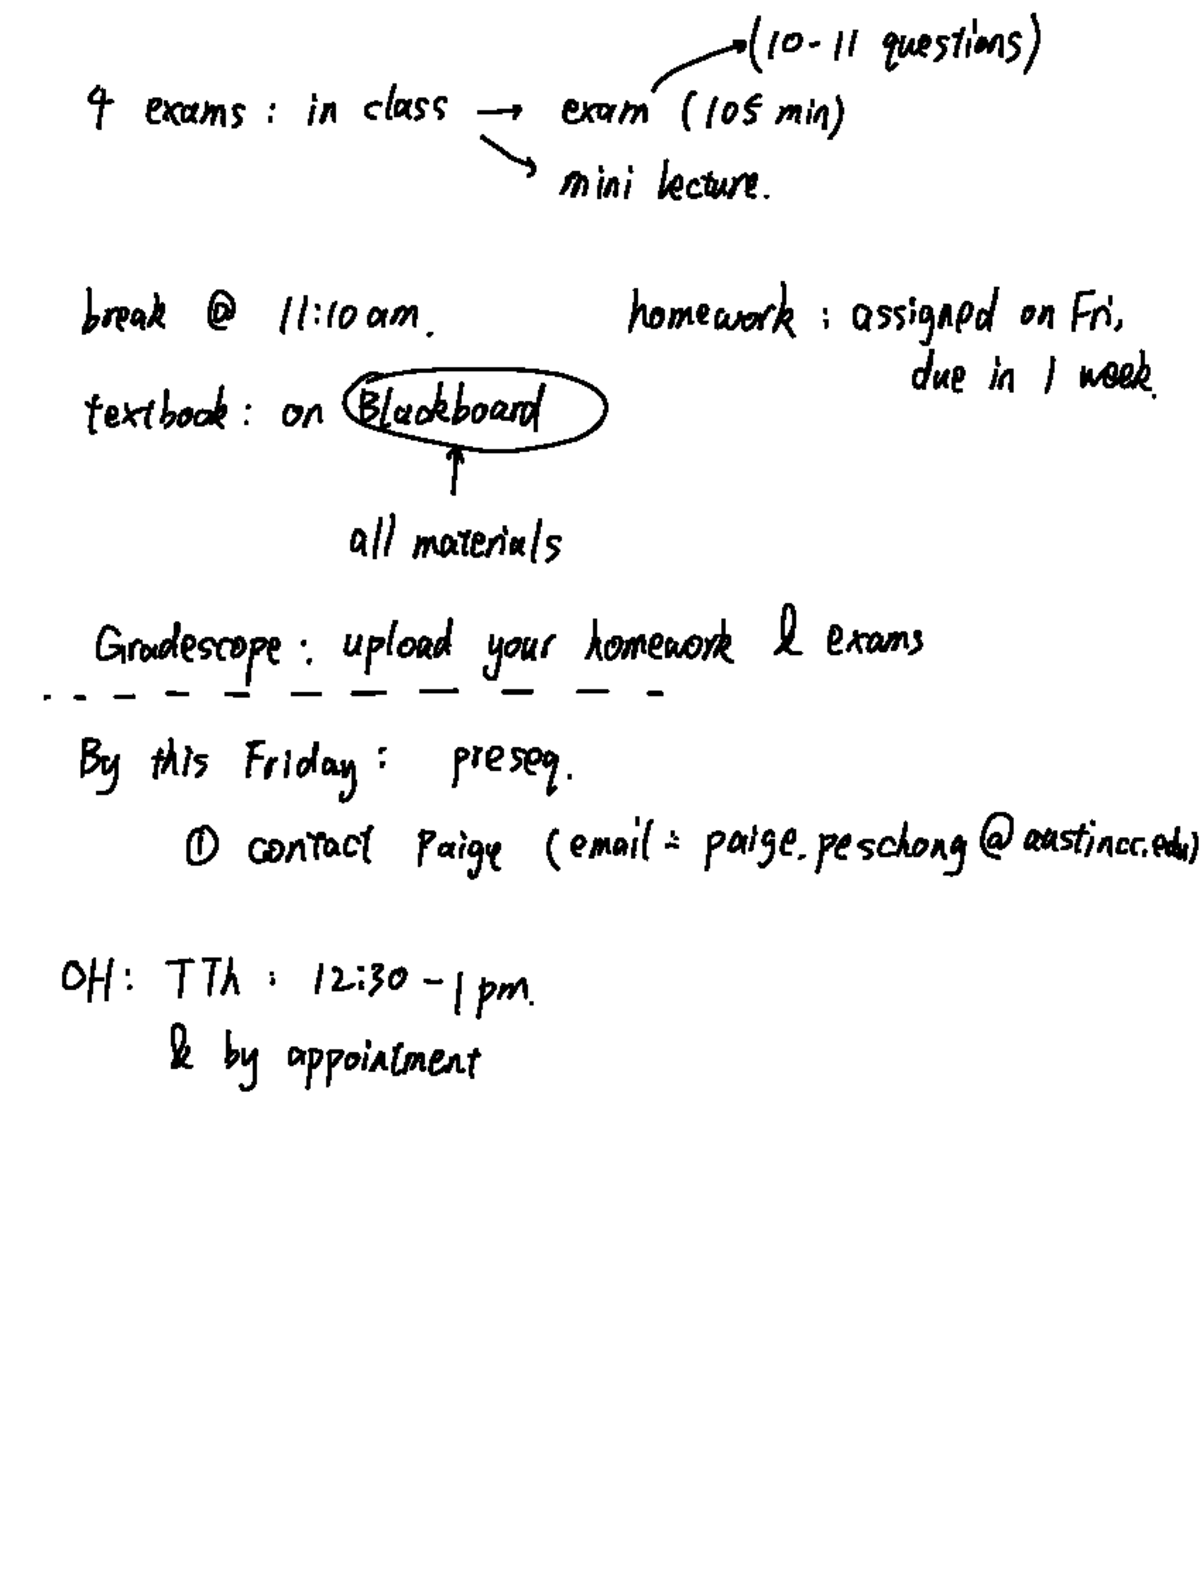 (10-11 questions)
4 exams: in class → exam (105 min)
mini lecture.
break @ 11:10 am.
homework: assigned on Fri,
due in 1 week.
textbook: on Blackboard
all materials
Gradescope: upload your homework & exams
By this Friday: preseq.
① contact Paige (email: paige.peschong@austincc.edu)
OH: TTh: 12:30-1 pm.
& by appointment